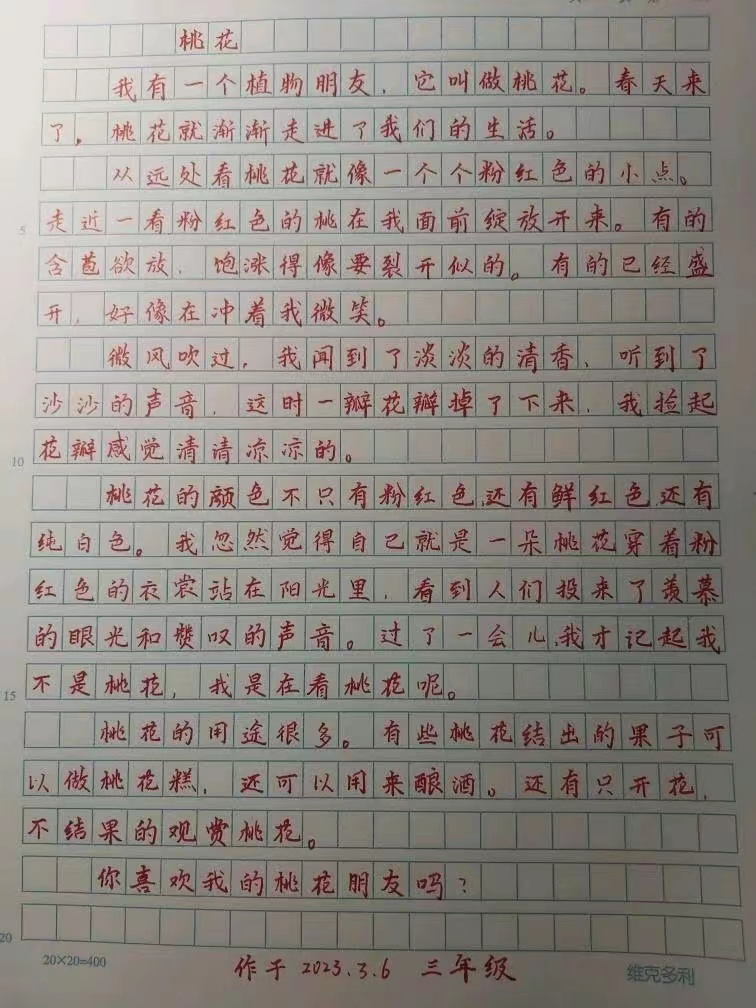 桃花
我有一个植物朋友，它叫做桃花。春天来
了，桃花就渐渐走进了我们的生活。
从远处看桃花就像一个个粉红色的小点。
5
走近一看粉红色的桃在我面前绽放开来。有的
含苞欲放，饱涨得像要裂开似的。有的已经盛
开，好像在冲着我微笑。
微风吹过，我闻到了淡淡的清香，听到了
沙沙的声音，这时一瓣花瓣掉了下来，我捡起
10
花瓣感觉清清凉凉的。
桃花的颜色不只有粉红色，还有鲜红色，还有
纯白色。我忽然觉得自己就是一朵桃花穿着粉
红色的衣裳站在阳光里，看到人们投来了羡慕
的眼光和赞叹的声音。过了一会儿，我才记起我
15
不是桃花，我是在看桃花呢。
桃花的用途很多。有些桃花结出的果子可
以做桃花糕，还可以用来酿酒。还有只开花，
不结果的观赏桃花。
你喜欢我的桃花朋友吗？
20
20×20=400
作于2023.3.6 三年级
维克多利